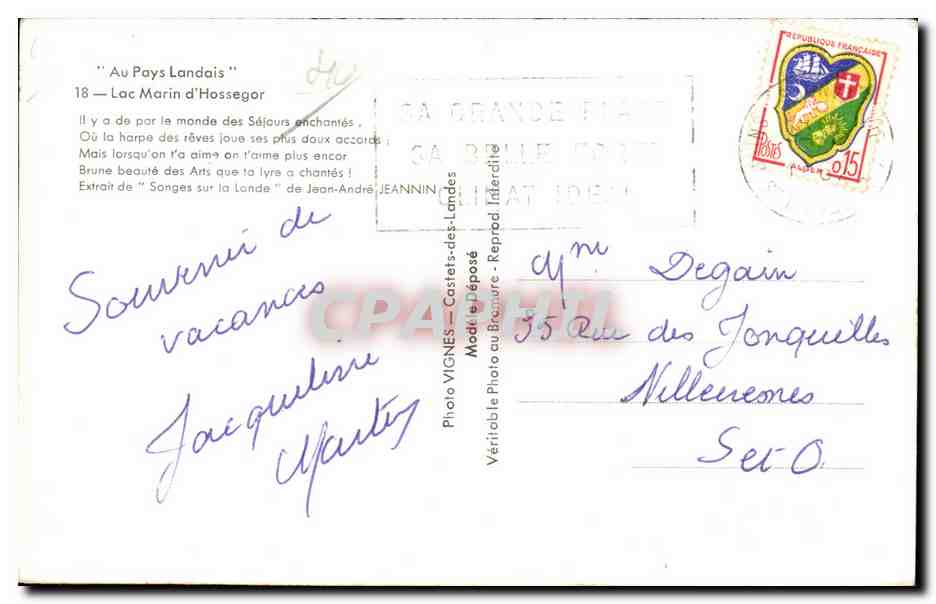 " Au Pays Landais "
18 — Lac Marin d'Hossegor
Il y a de par le monde des Séjours enchantés,
Où la harpe des rêves joue ses plus doux accords
Mais lorsqu'on t'a aimé on t'aime plus encor
Brune beauté des Arts que ta lyre a chantés !
Extrait de " Songes sur la Lande " de Jean-André JEANNIN
Souvenir de
vacances
Jacqueline
Photo VIGNES — Castets-des-Landes
Modèle Déposé
Véritable Photo au Bromure - Reprod Interdite
SA GRANDE PLAGE
SA BELLE FORET
CLIMAT IDEAL
REPUBLIQUE FRANÇAISE
POSTES
ALGER
0,15
Mme Degain
35 Rue des Jonquilles
Villecresnes
S et O.
CPAPHIL